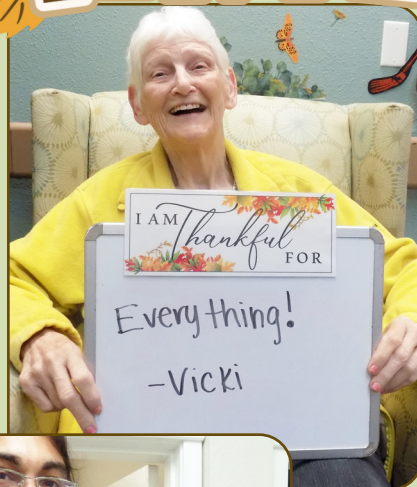 I AM Thankful FOR
Everything!
-Vicki